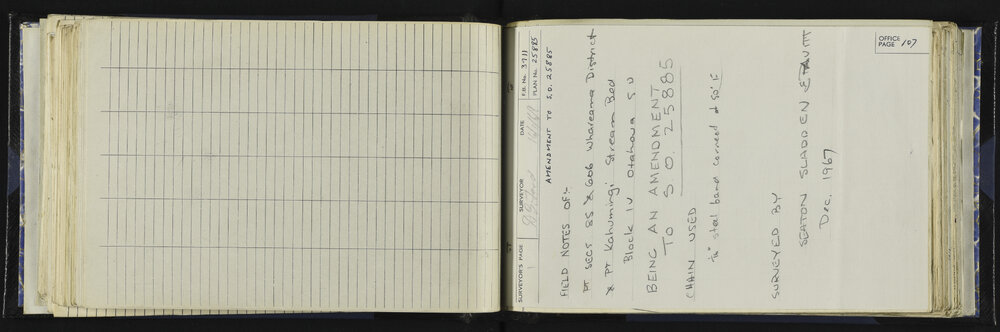 OFFICE PAGE 107
SURVEYOR'S PAGE 1 SURVEYOR DATE F.B. No. 3711
PLAN No. 25885
AMENDMENT TO S.O. 25885
FIELD NOTES OF:-
PT SECS 85 & 606 Whareama District
& PT Kahumingi Stream Bed
Block IV Otahoua S.D
BEING AN AMENDMENT
TO S.O. 25885
CHAIN USED
steel band correct at 50° F
SURVEYED BY
SEATON SLADDEN &
Dec. 1967